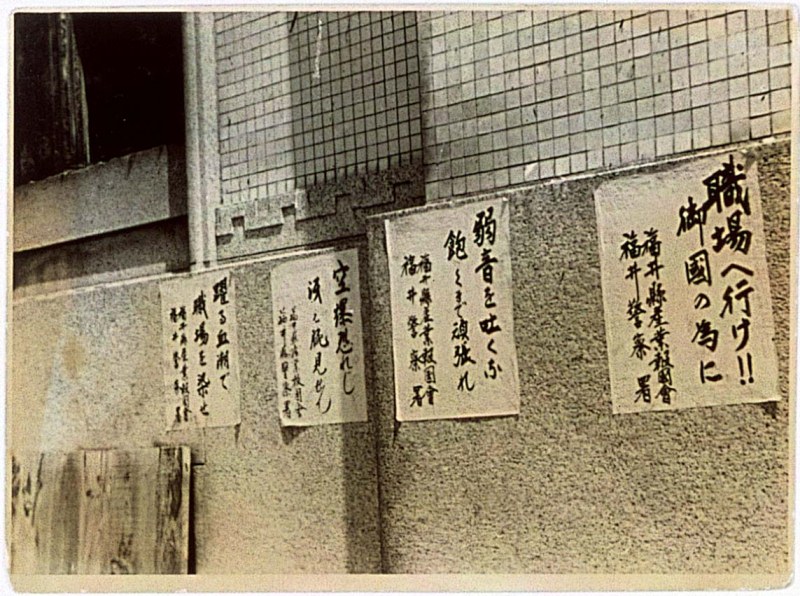 職場へ行け!!
御國の為に
福井縣産業報國會
福井警察署
弱音を吐くな
飽くまで頑張れ
福井縣産業報國會
福井警察署
空爆恐れし
福井縣産業報國會
福井警察署
躍る血潮で
職場を染せ
福井縣産業報國會
福井警察署